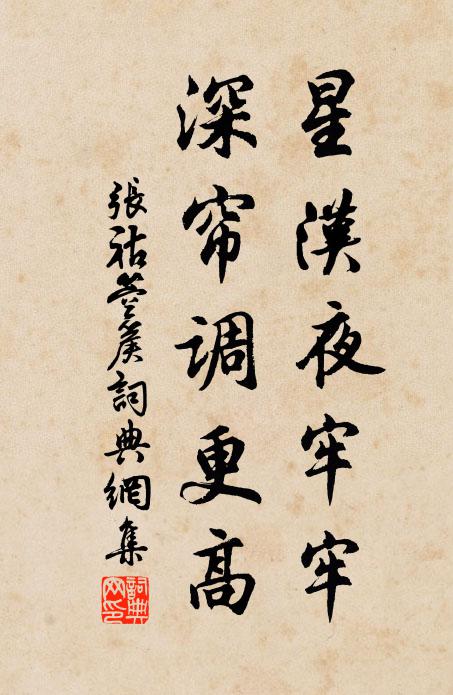 星漢夜牢牢
深帘调更高
張祜箜篌詞典網集
詞典網印